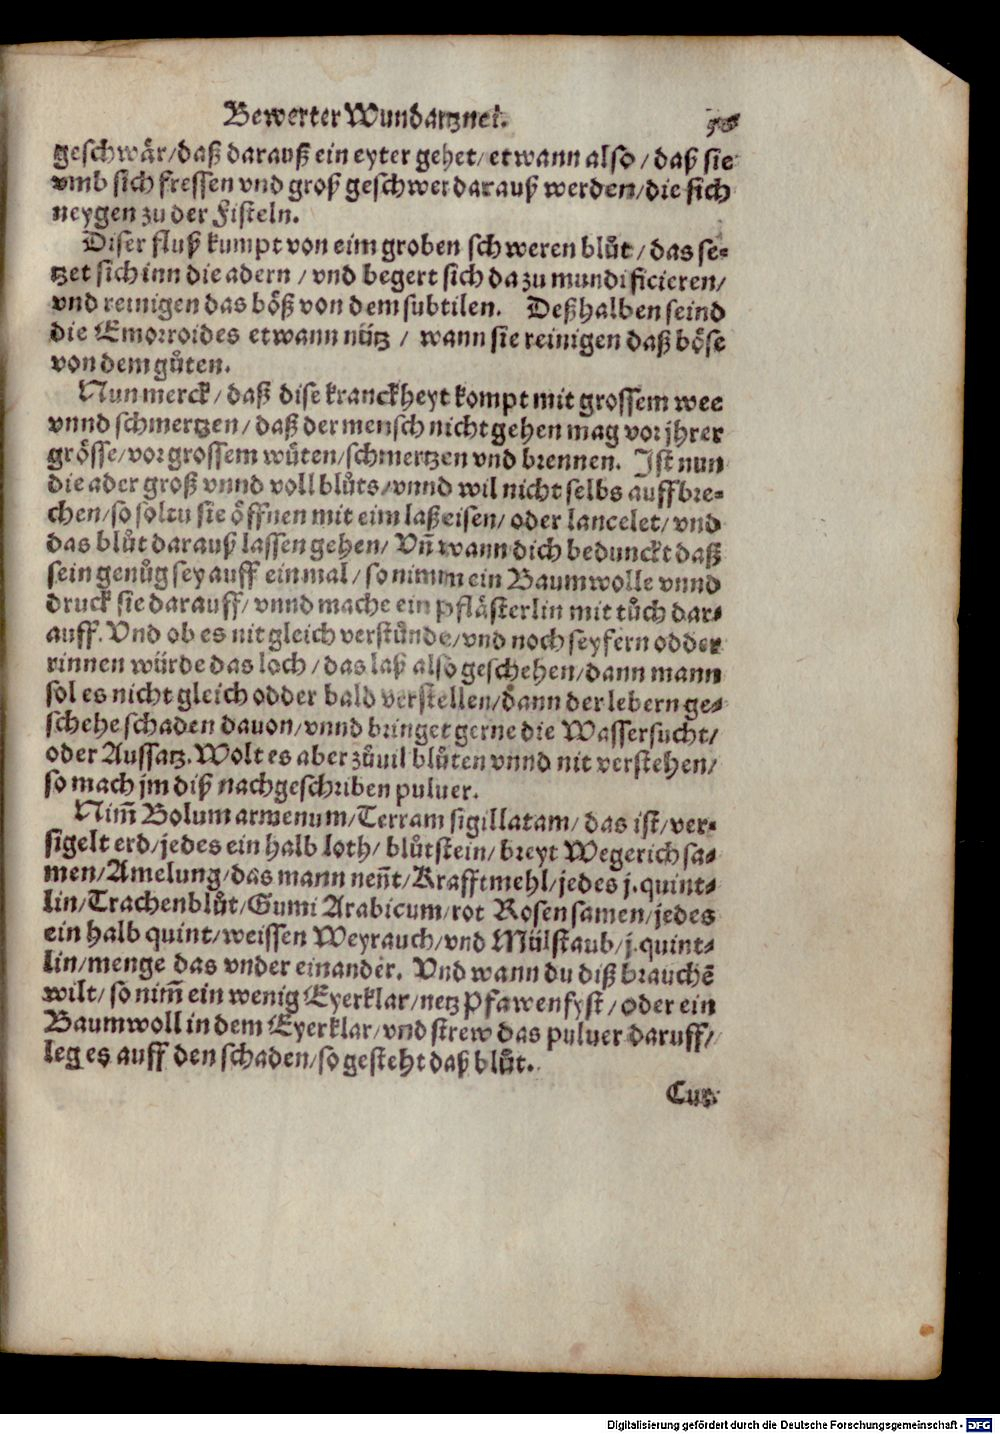 Bewerter Wundartznei.
geschwär/daß darauß ein eyter gehet/etwann also/daß sie
vmb sich fressen vnd groß geschwer darauß werden/die sich
neygen zu der Fisteln.
Diser fluß kumpt von eim groben schweren blůt/das se-
tzet sich inn die adern/vnd begert sich da zu mundificieren/
vnd reinigen das böß von dem subtilen. Deßhalben seind
die Emorroides etwann nütz/ wann sie reinigen daß böse
von dem gůten.
Nun merck/daß dise kranckheyt kompt mit grossem wee
vnnd schmertzen/daß der mensch nicht gehen mag vor jhrer
grösse/vor grossem wüten/schmertzen vnd brennen. Ist nun
die ader groß vnnd voll blůts/vnnd wil nicht selbs auffbre-
chen/so soltu sie öffnen mit eim laßeisen/oder lancelet/vnd
das blůt darauß lassen gehen/Vñ wann dich bedunckt daß
sein genůg sey auff ein mal/so nimm ein Baumwolle vnnd
druck sie darauff/vnnd mache ein pflästerlin mit tůch dar-
auff. Vnd ob es nit gleich verstůnde/vnd noch seyfern odder
rinnen würde das loch/das laß also geschehen/dann mann
sol es nicht gleich odder bald verstellen/dann der lebern ge-
schehe schaden dauon/vnnd bringet gerne die Wassersucht/
oder Aussatz. Wolt es aber zůuil blůten vnnd nit verstehen/
so mach jm diß nachgeschriben puluer.
Nim̃ Bolum armenum/Terram sigillatam/das ist/ver-
sigelt erd/jedes ein halb loth/blůtstein/breyt Wegerich sa-
men/Amelung/das mann neñt/Krafftmehl/jedes j. quint-
lin/Trachenblůt/Gumi Arabicum/rot Rosen samen/jedes
ein halb quint/weissen Weyrauch/vnd Mülstaub/j. quint-
lin/menge das vnder einander. Vnd wann du diß brauchẽ
wilt/so nim̃ ein wenig Eyerklar/netz Pfawenfyst/oder ein
Baumwoll in dem Eyerklar/vnd strew das puluer daruff/
leg es auff den schaden/so gesteht daß blůt.
Digitalisierung gefördert durch die Deutsche Forschungsgemeinschaft - DFG